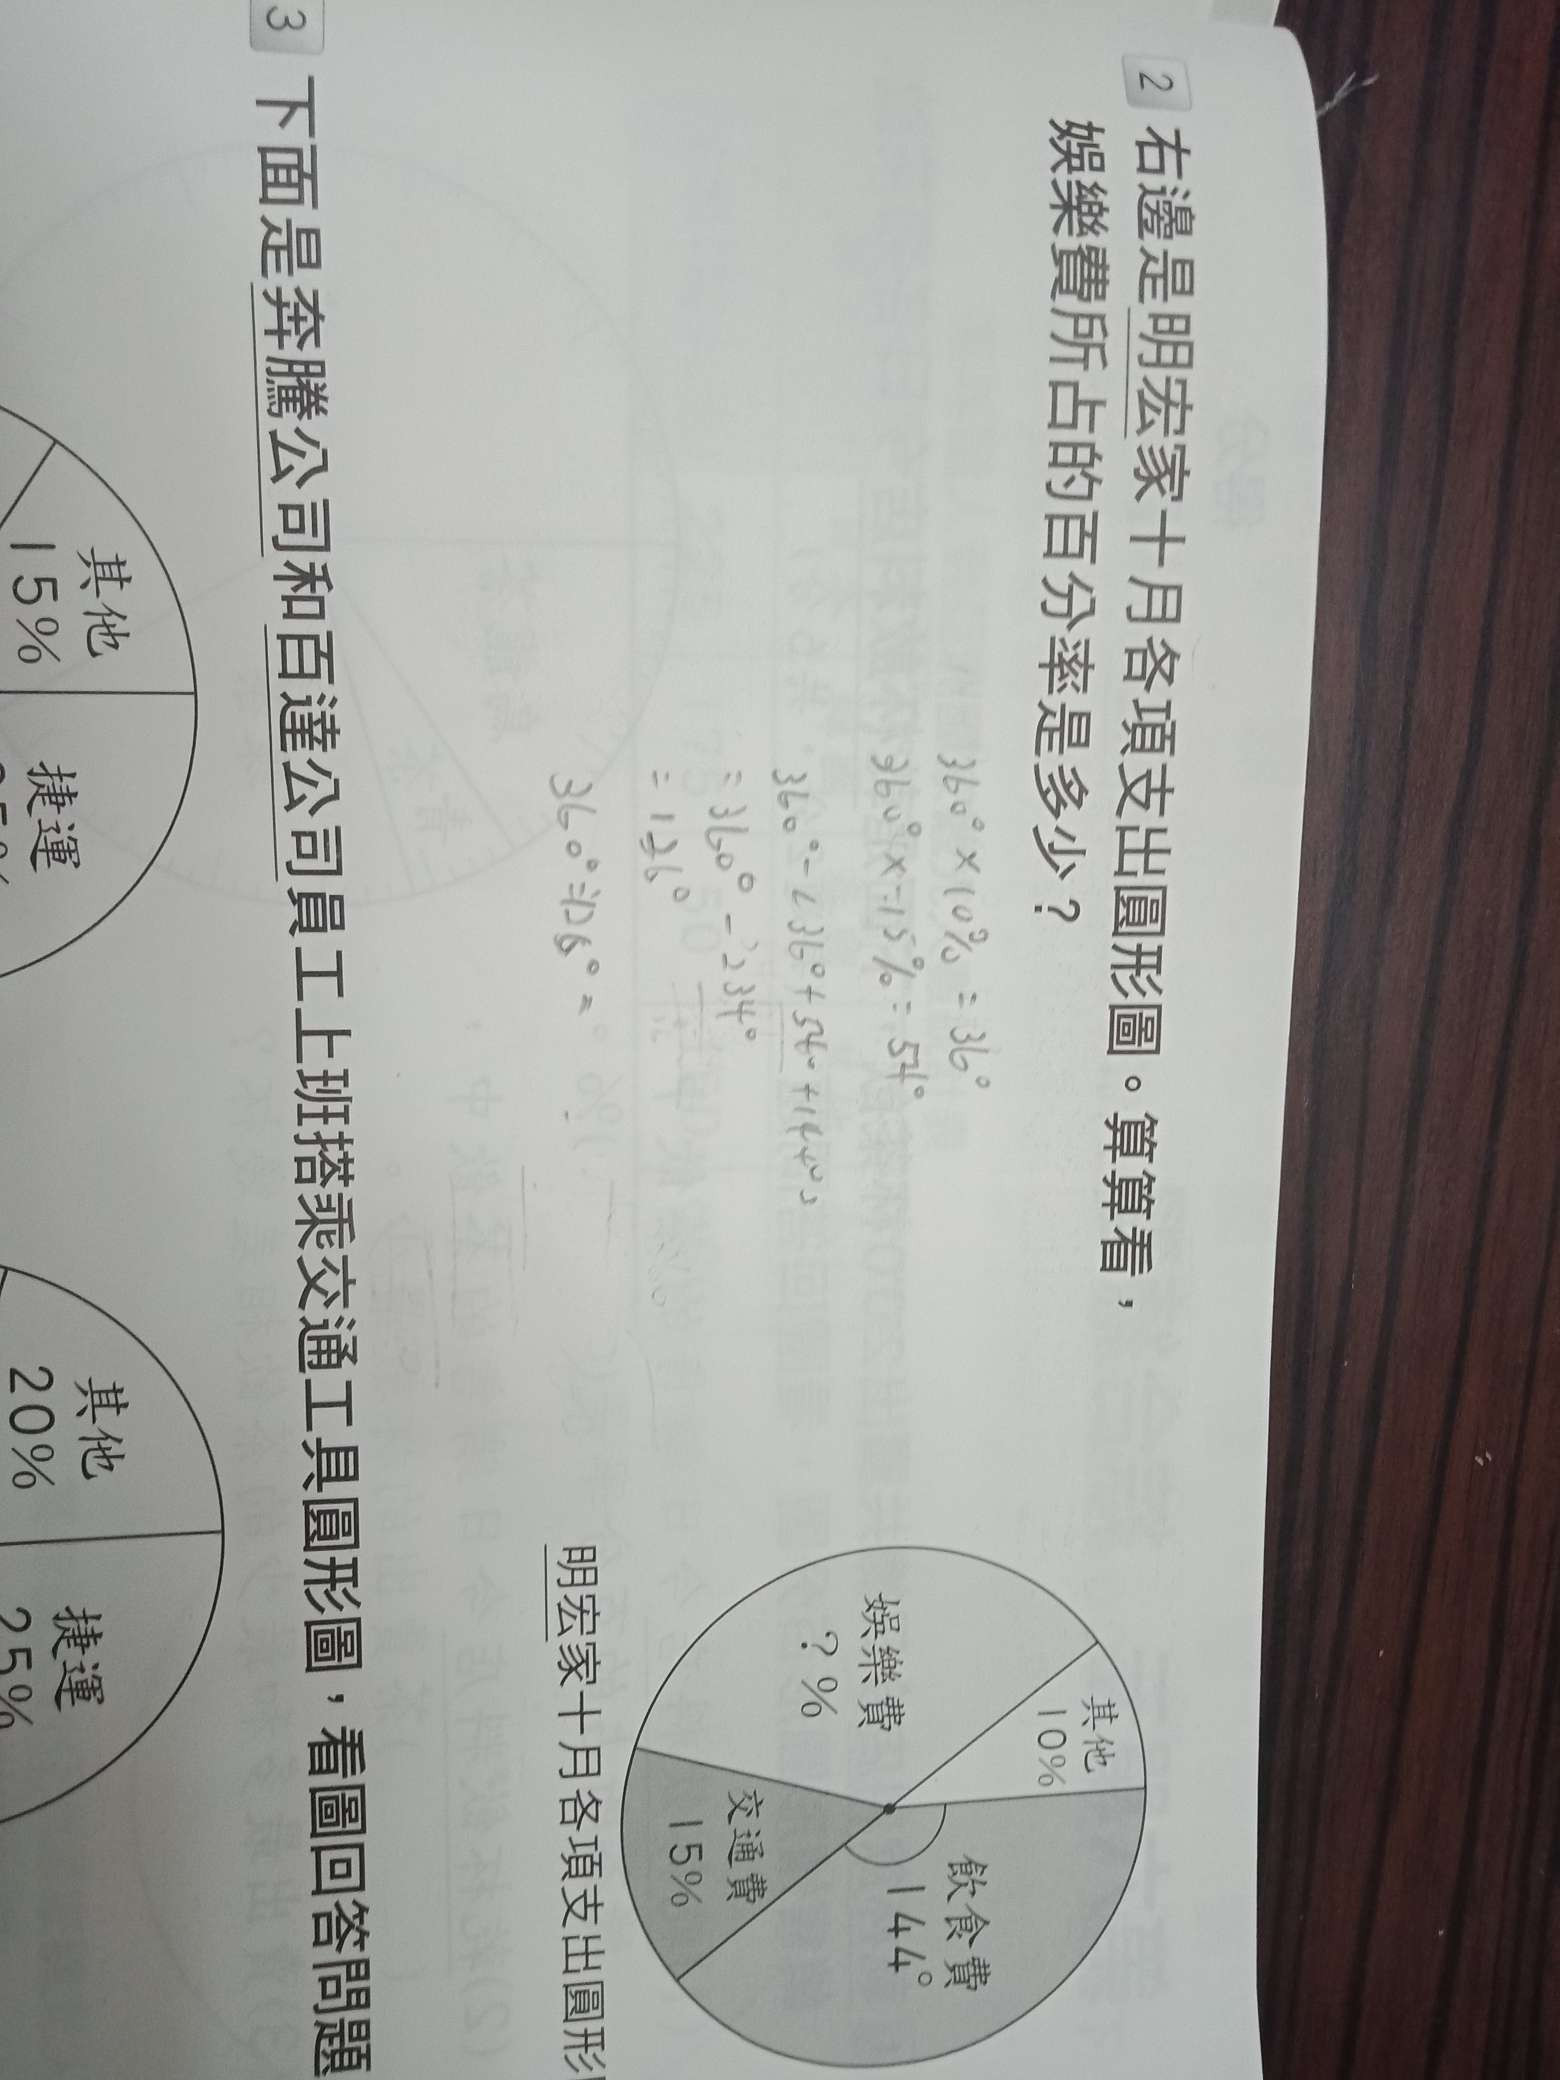 2 右邊是明宏家十月各項支出圓形圖。算算看,
娛樂費所占的百分率是多少?
360°×10%=36°
360°×15%=54°
360°-(36°+54°+144°)
=360°-234°
=126°
360°÷126°=
其他
10%
飲食費
144°
娛樂費
?%
交通費
15%
明宏家十月各項支出圓形
3 下面是奔騰公司和百達公司員工上班搭乘交通工具圓形圖,看圖回答問題
其他
15%
捷運
其他
20%
捷運
25%